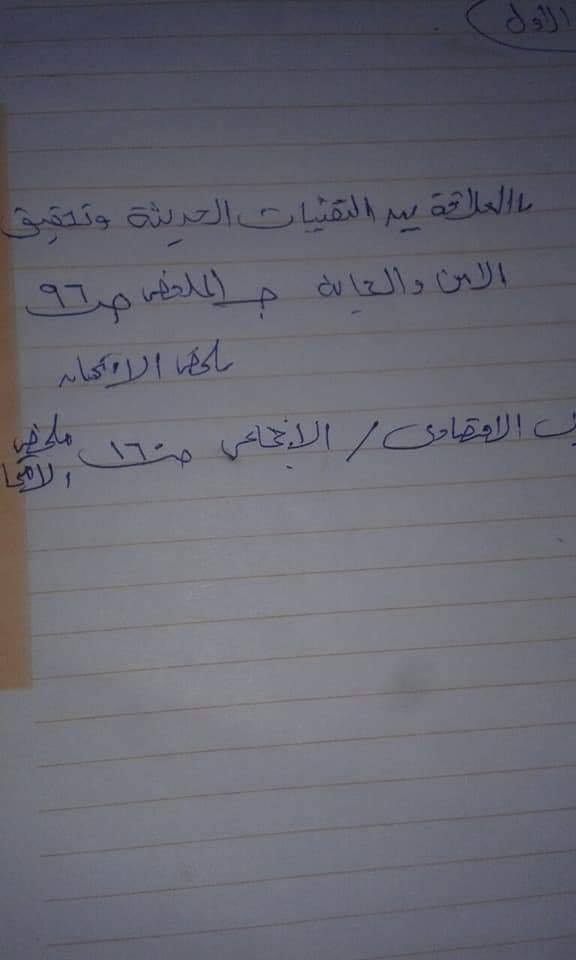 الأول
العلاقة بين التقنيات الحديثة وتحقيق
الامن والحماية جـ الملخص صـ ٩٦
ملخص الامتحان
الاقتصادى / الاجتماعى صـ ١٦ ملخص
الامتحا